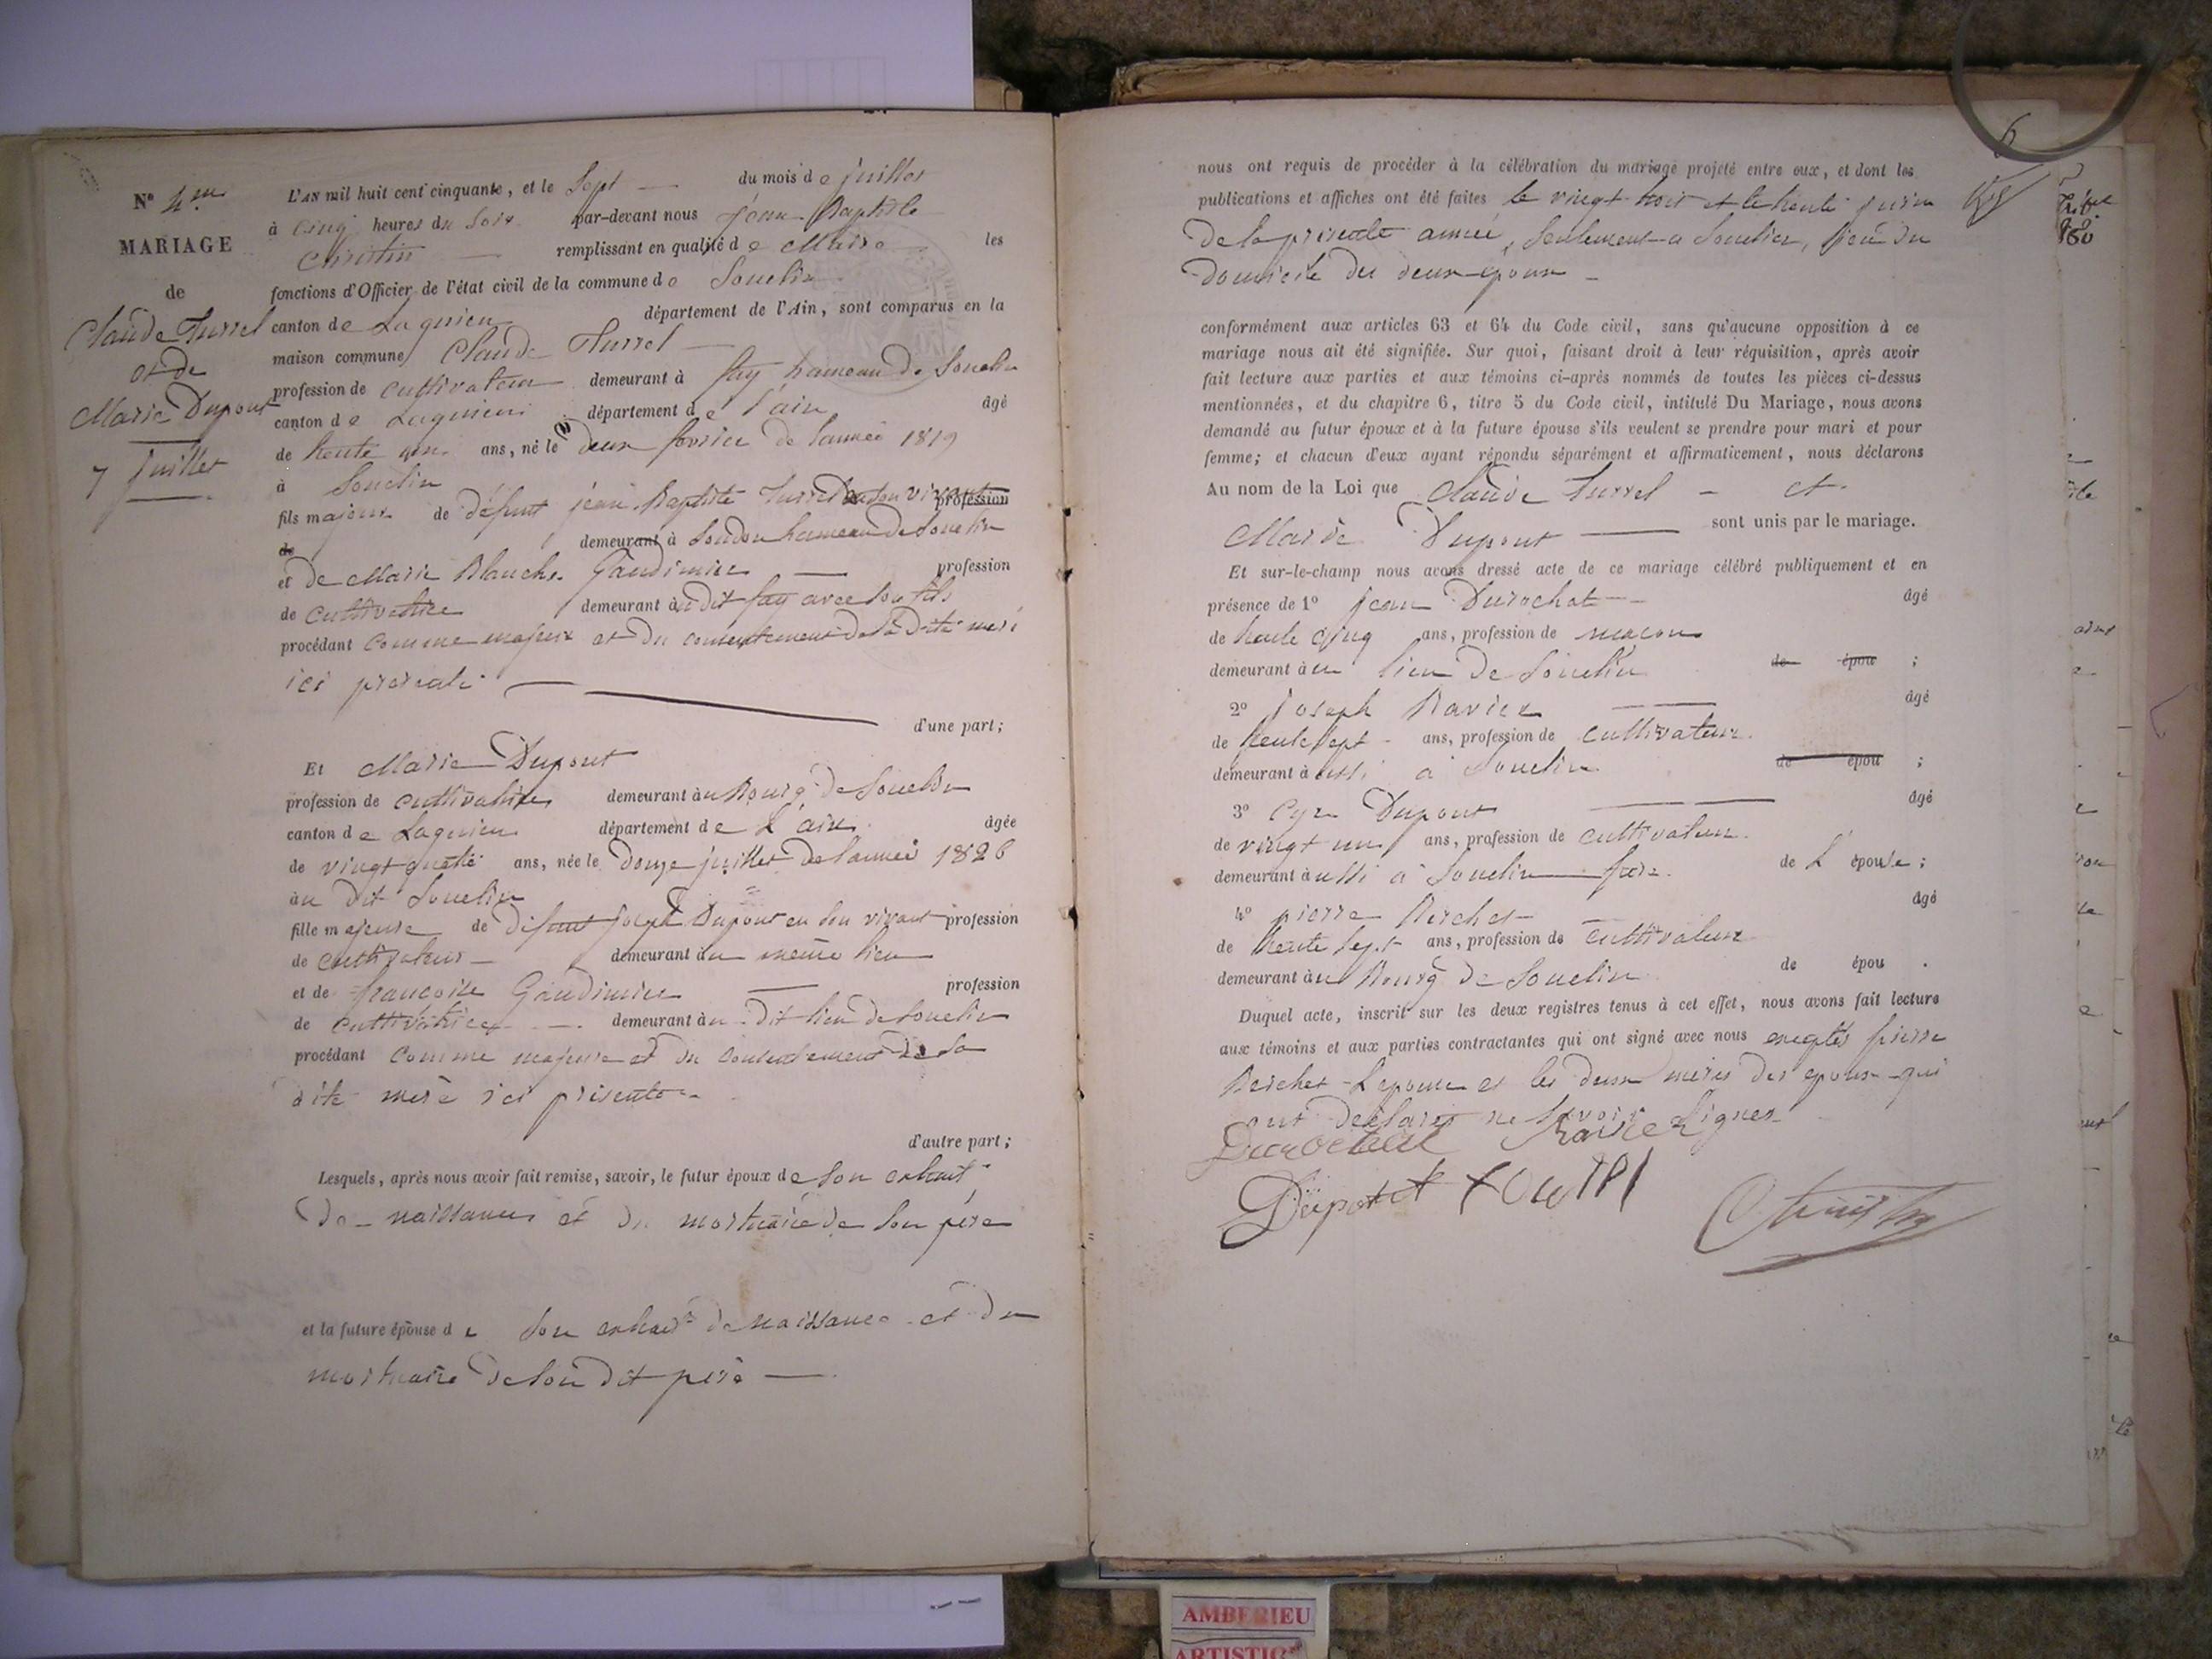 N° 4me
MARIAGE
de
Claude Turrel
et de
Marie Dupont
7 Juillet
L'AN mil huit cent cinquante, et le Sept du mois de juillet
à Cinq heures du Soir par-devant nous jéan Baptiste
Christin remplissant en qualité de Maire les
fonctions d'Officier de l'état civil de la commune de Souclin
canton de Lagnieu département de l'Ain, sont comparus en la
maison commune Claude Turrel
profession de cultivateur demeurant à fay hameau de Souclin
canton de Lagnieu département de l'ain âgé
de trente un ans, né le deux fevrier de l'année 1819
à Souclin
fils majeur de défunt jéan Baptiste Turrel en son vivant profession
de demeurant à Soudon hameau de Souclin
et de Marie Blanche Gaudimier profession
de cultivatrice demeurant au dit fay avec son fils
procédant comme majeur et du consentement de la dite meré
ici presente
d'une part;
Et Marie Dupont
profession de cultivatrice demeurant au Bourg de Souclin
canton de Lagnieu département de L'ain âgée
de vingt quatre ans, née le douze juillet de l'année 1826
au dit Souclin
fille majeure de défunt joseph Dupont en son vivant profession
de cultivateur demeurant au même lieu
et de françoise Gaudimier profession
de cultivatrice demeurant au dit lieu de Souclin
procédant comme majeure et du consentement de sa
dite meré ici présente
d'autre part;
Lesquels, après nous avoir fait remise, savoir, le futur époux de son extrait
de naissance et du mortuaire de son père
et la future épouse de son extrait de naissance et du
mortuaire de son dit père
6
nous ont requis de procéder à la célébration du mariage projeté entre eux, et dont les
publications et affiches ont été faites le vingt trois et le trente juin
de la présente année, seulement a Souclin, lieu du
domicile des deux époux
conformément aux articles 63 et 64 du Code civil, sans qu'aucune opposition à ce
mariage nous ait été signifiée. Sur quoi, faisant droit à leur réquisition, après avoir
fait lecture aux parties et aux témoins ci-après nommés de toutes les pièces ci-dessus
mentionnées, et du chapitre 6, titre 5 du Code civil, intitulé Du Mariage, nous avons
demandé au futur époux et à la future épouse s'ils veulent se prendre pour mari et pour
femme; et chacun d'eux ayant répondu séparément et affirmativement, nous déclarons
Au nom de la Loi que Claude Turrel et
Marie Dupont sont unis par le mariage.
Et sur-le-champ nous avons dressé acte de ce mariage célébré publiquement et en
présence de 1° jean Durochat âgé
de trente cinq ans, profession de macon
demeurant au lieu de Souclin de épou ;
2° Joseph Ravier âgé
de trente sept ans, profession de cultivateur
demeurant aussi à Souclin de épou ;
3° Cyr Dupont âgé
de vingt un ans, profession de cultivateur
demeurant aussi à Souclin frère de L'épouse;
4° pierre Berchet âgé
de trente sept ans, profession de cultivateur
demeurant au Bourg de Souclin de épou .
Duquel acte, inscrit sur les deux registres tenus à cet effet, nous avons fait lecture
aux témoins et aux parties contractantes qui ont signé avec nous exeptés pierre
Berchet L'epouse et les deux mères des epoux qui
ont declaré ne savoir Signer
Durochat Ravier
Dupont
Christin
AMBERIEU
ARTISTIQ